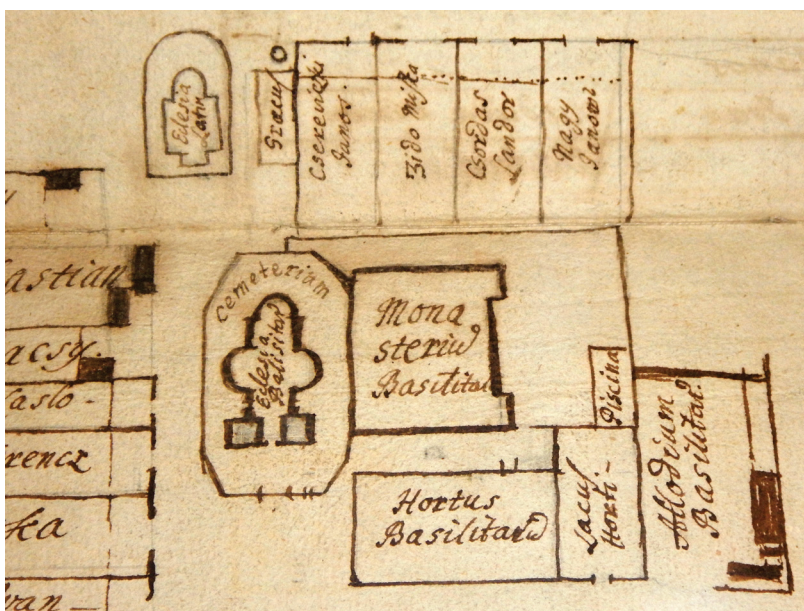 Eclesia
Latin
Gracus
Cserenicki
Janos.
Zido Miska
Csordas
Sandor
Nagy
Janosne
astian
acsy.
aslo-
rencz
ka
van—
Cemeterium
Eclesia
Basilitar
Mona
steriu
Basilitar
Piscina
Hortus
Basilitaru
Lacus
Horti-
Allodium
Basilitar.